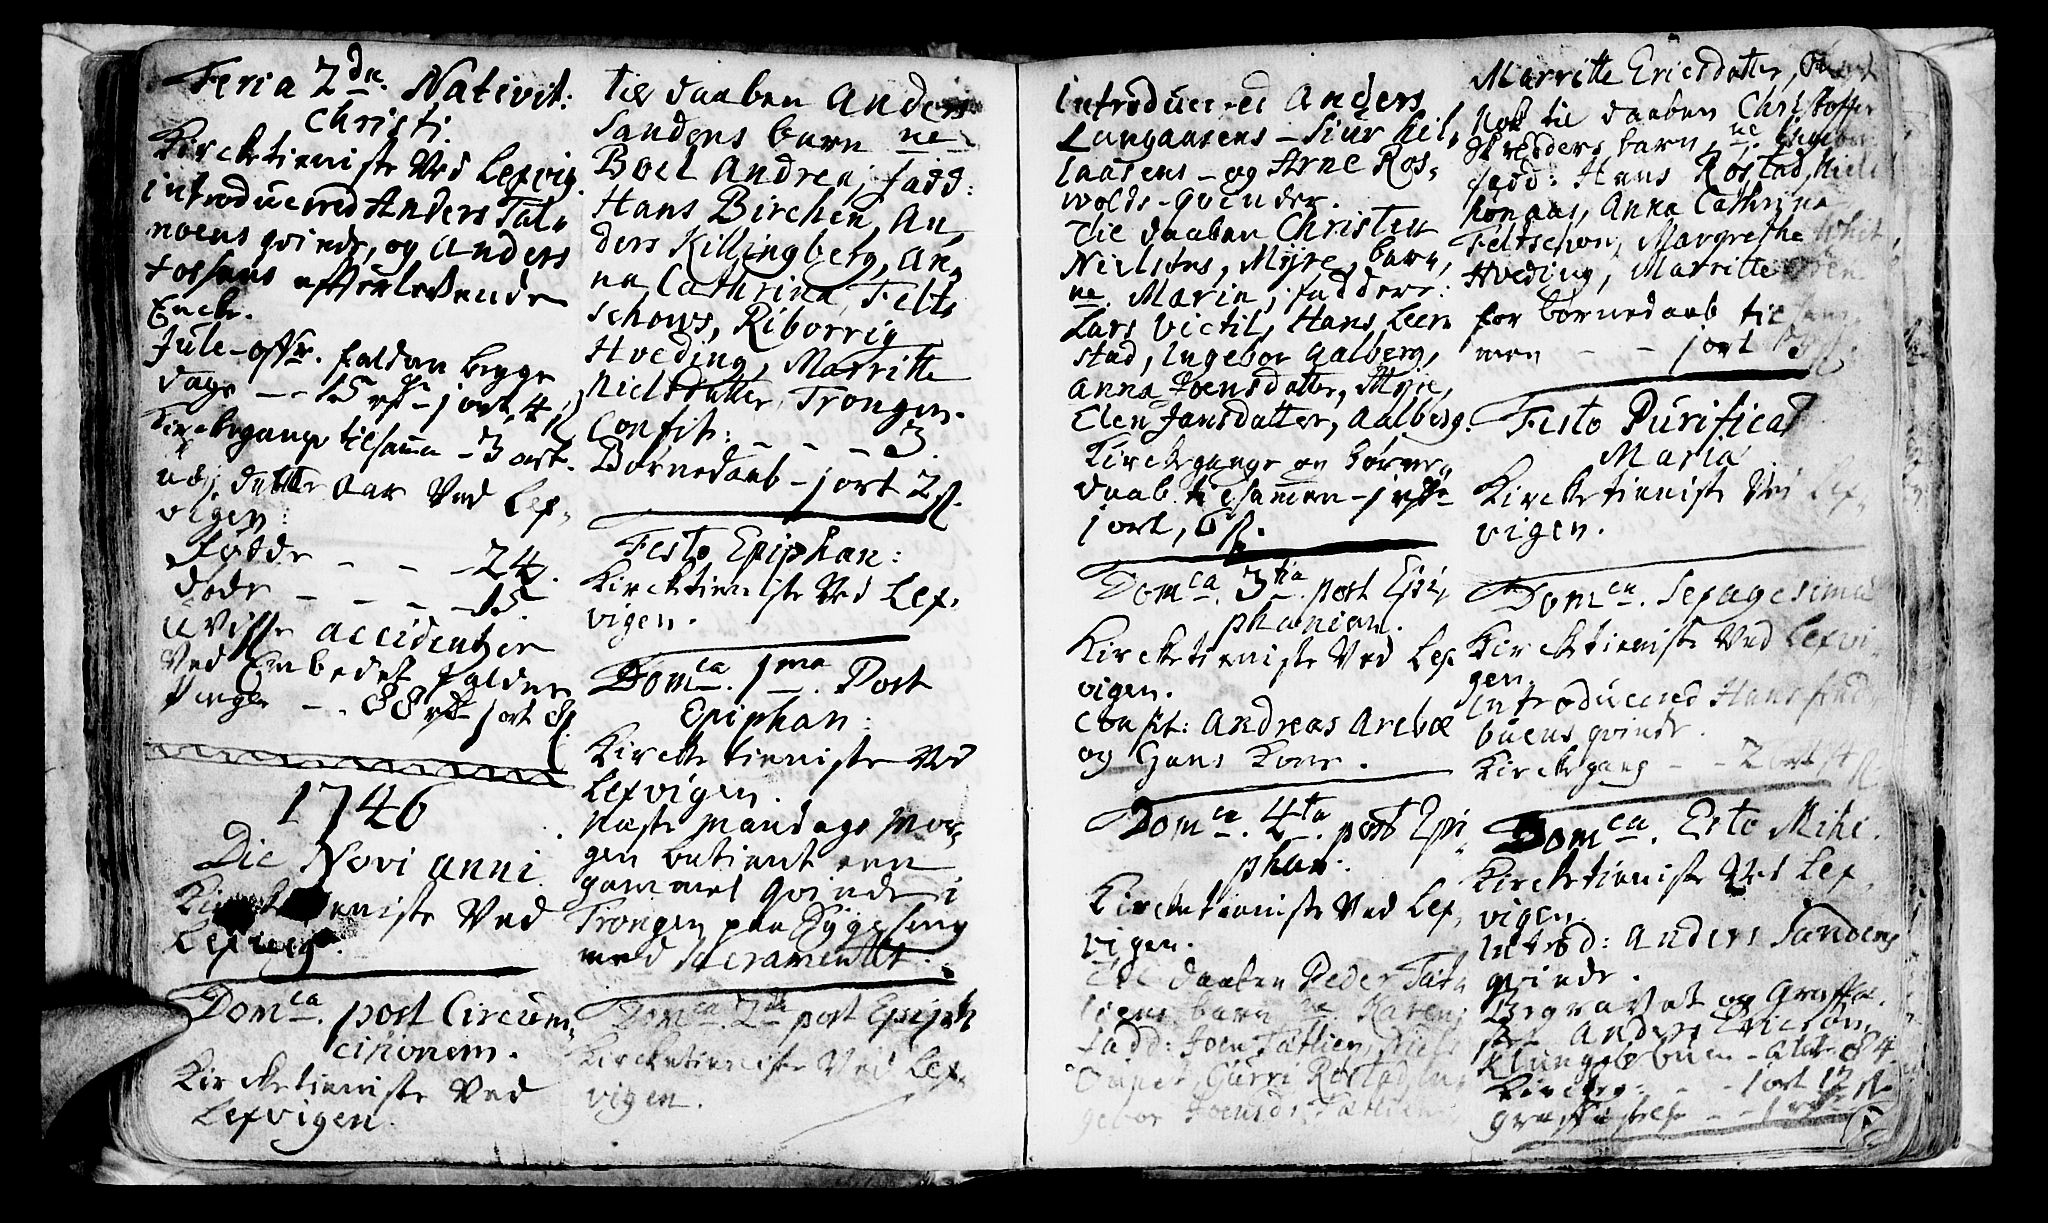 Feria 2de. Nativit:
Christi.
Kircketieniste Ved Lexvig.
introducered Anders Tal-
noens qvinde, og Anders
Fossens effterlevende
Encke.
Jule-offr. falden begge
dage - - 15 rd - 1 ort, 4 s
Kirckegange tilsamen - 3 ort.
udj dette Aar Ved Lex-
vigen:
Fødde - - - 24.
døde - - - - 15
uvisse accidentzer
Ved Embedet faldne
penge - - 88 rd 1 ort 8 s
1746
Die Novi anni
Kircketieniste Ved
Lexvigen.
Domca. post Circum-
cisionem.
Kircketieniste Ved
Lexvigen.
til daaben Anders
Sandens barn ne.
Boel Andrea, fadd:
Hans Birchen, An-
ders Killingberg, An-
na Cathrina Felt-
schows, Riborrig
Hveding, Marritte
Nielsdatter Trongen.
Confit: - - - 3.
Børnedaab - 1 ort 2 s.
Festo Epiphan:
Kircketieniste Ved Lex-
vigen.
Domca. 1ma. Post
Epiphan:
Kircketieniste Ved
Lexvigen.
Næste Mandags Mor-
gen betient een
gammel qvinde i
Trongen paa Sygesseng
med Sacramentet.
Domca. 2da post Epiph
Kircketieniste Ved Lex-
vigen.
introducered Anders
Langaasens - Siur Hil-
laasens - og Arne Ros-
wolds - qvinder.
Til daaben Christen
Nielsens, Myre, barn,
ne. Marin, faddere:
Lars Victil, Hans Leer-
stad, Ingebor Aalberg,
Anna Joensdatter, Myre,
Elen Jansdatter, Aalberg.
Kirckegange og børne-
daab tilsammen - 1 rd -
1 ort, 6 s.
Domca. 3tia. post Epi-
phanian.
Kircketieniste Ved Lex
vigen.
Confit: Andreas Areboe
og Hans Kone.
Domca. 4ta. post Epi-
phan.
Kircketieniste Ved Lex-
vigen.
Til daaben Peder Tat-
liens barn ne. Karen,
fadd: Joen Tatlien, Niels
Gurri Rostad, In-
gebor Joensdr Tatlien
Marritte Ericsdatter,
Nok til daaben Christoffer
Skredders barn, ne.
fadd: Hans Rostad, Niels
Anna Cathrina
Feltschow, Margrethe
Hveding, Marritte
for børnedaab tilsam-
men - - 1 ort
Festo Purificat
Maria
Kircketieniste Ved Lex-
vigen.
Domca. Sexagesima
Kircketieniste Ved Lexvi-
gen.
Introducered Hans
buens qvinde.
Kirckegang - - 2 ort 4 s.
Domca. Esto Mihi.
Kircketieniste Ved Lex-
vigen.
Introd: Anders Sandens
qvinde.
Begravet og Graffæ-
stet Anders Ericsøn
Klunggebuen - Ald. 84
Kirckeg: - - 1 ort 12 s
graffæstelse - - 1 rd